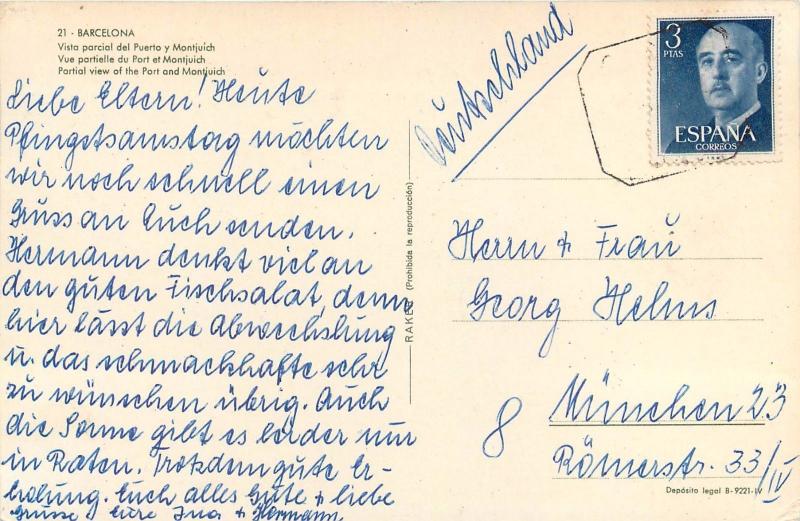 21 - BARCELONA
Vista parcial del Puerto y Montjuich
Vue partielle du Port et Montjuich
Partial view of the Port and Montjuich
Liebe Eltern! Heute
Pfingstsamstag möchten
wir noch schnell einen
Gruss an Euch senden.
Hermann denkt viel an
den guten Fischsalat, denn
hier lässt die Abwechslung
u. das schmackhafte sehr
zu wünschen übrig. Auch
die Sonne gibt es leider nur
in Raten. Trotzdem gute Er-
holung. Euch alles Gute + liebe
Grüsse Eure Inge + Hermann
RAKER (Prohibida la reproducción)
Deutschland
3
PTAS
ESPAÑA
CORREOS
Herrn + Frau
Georg Helms
8 München 23
Römerstr. 33/IV
Depósito legal B-9221-IV